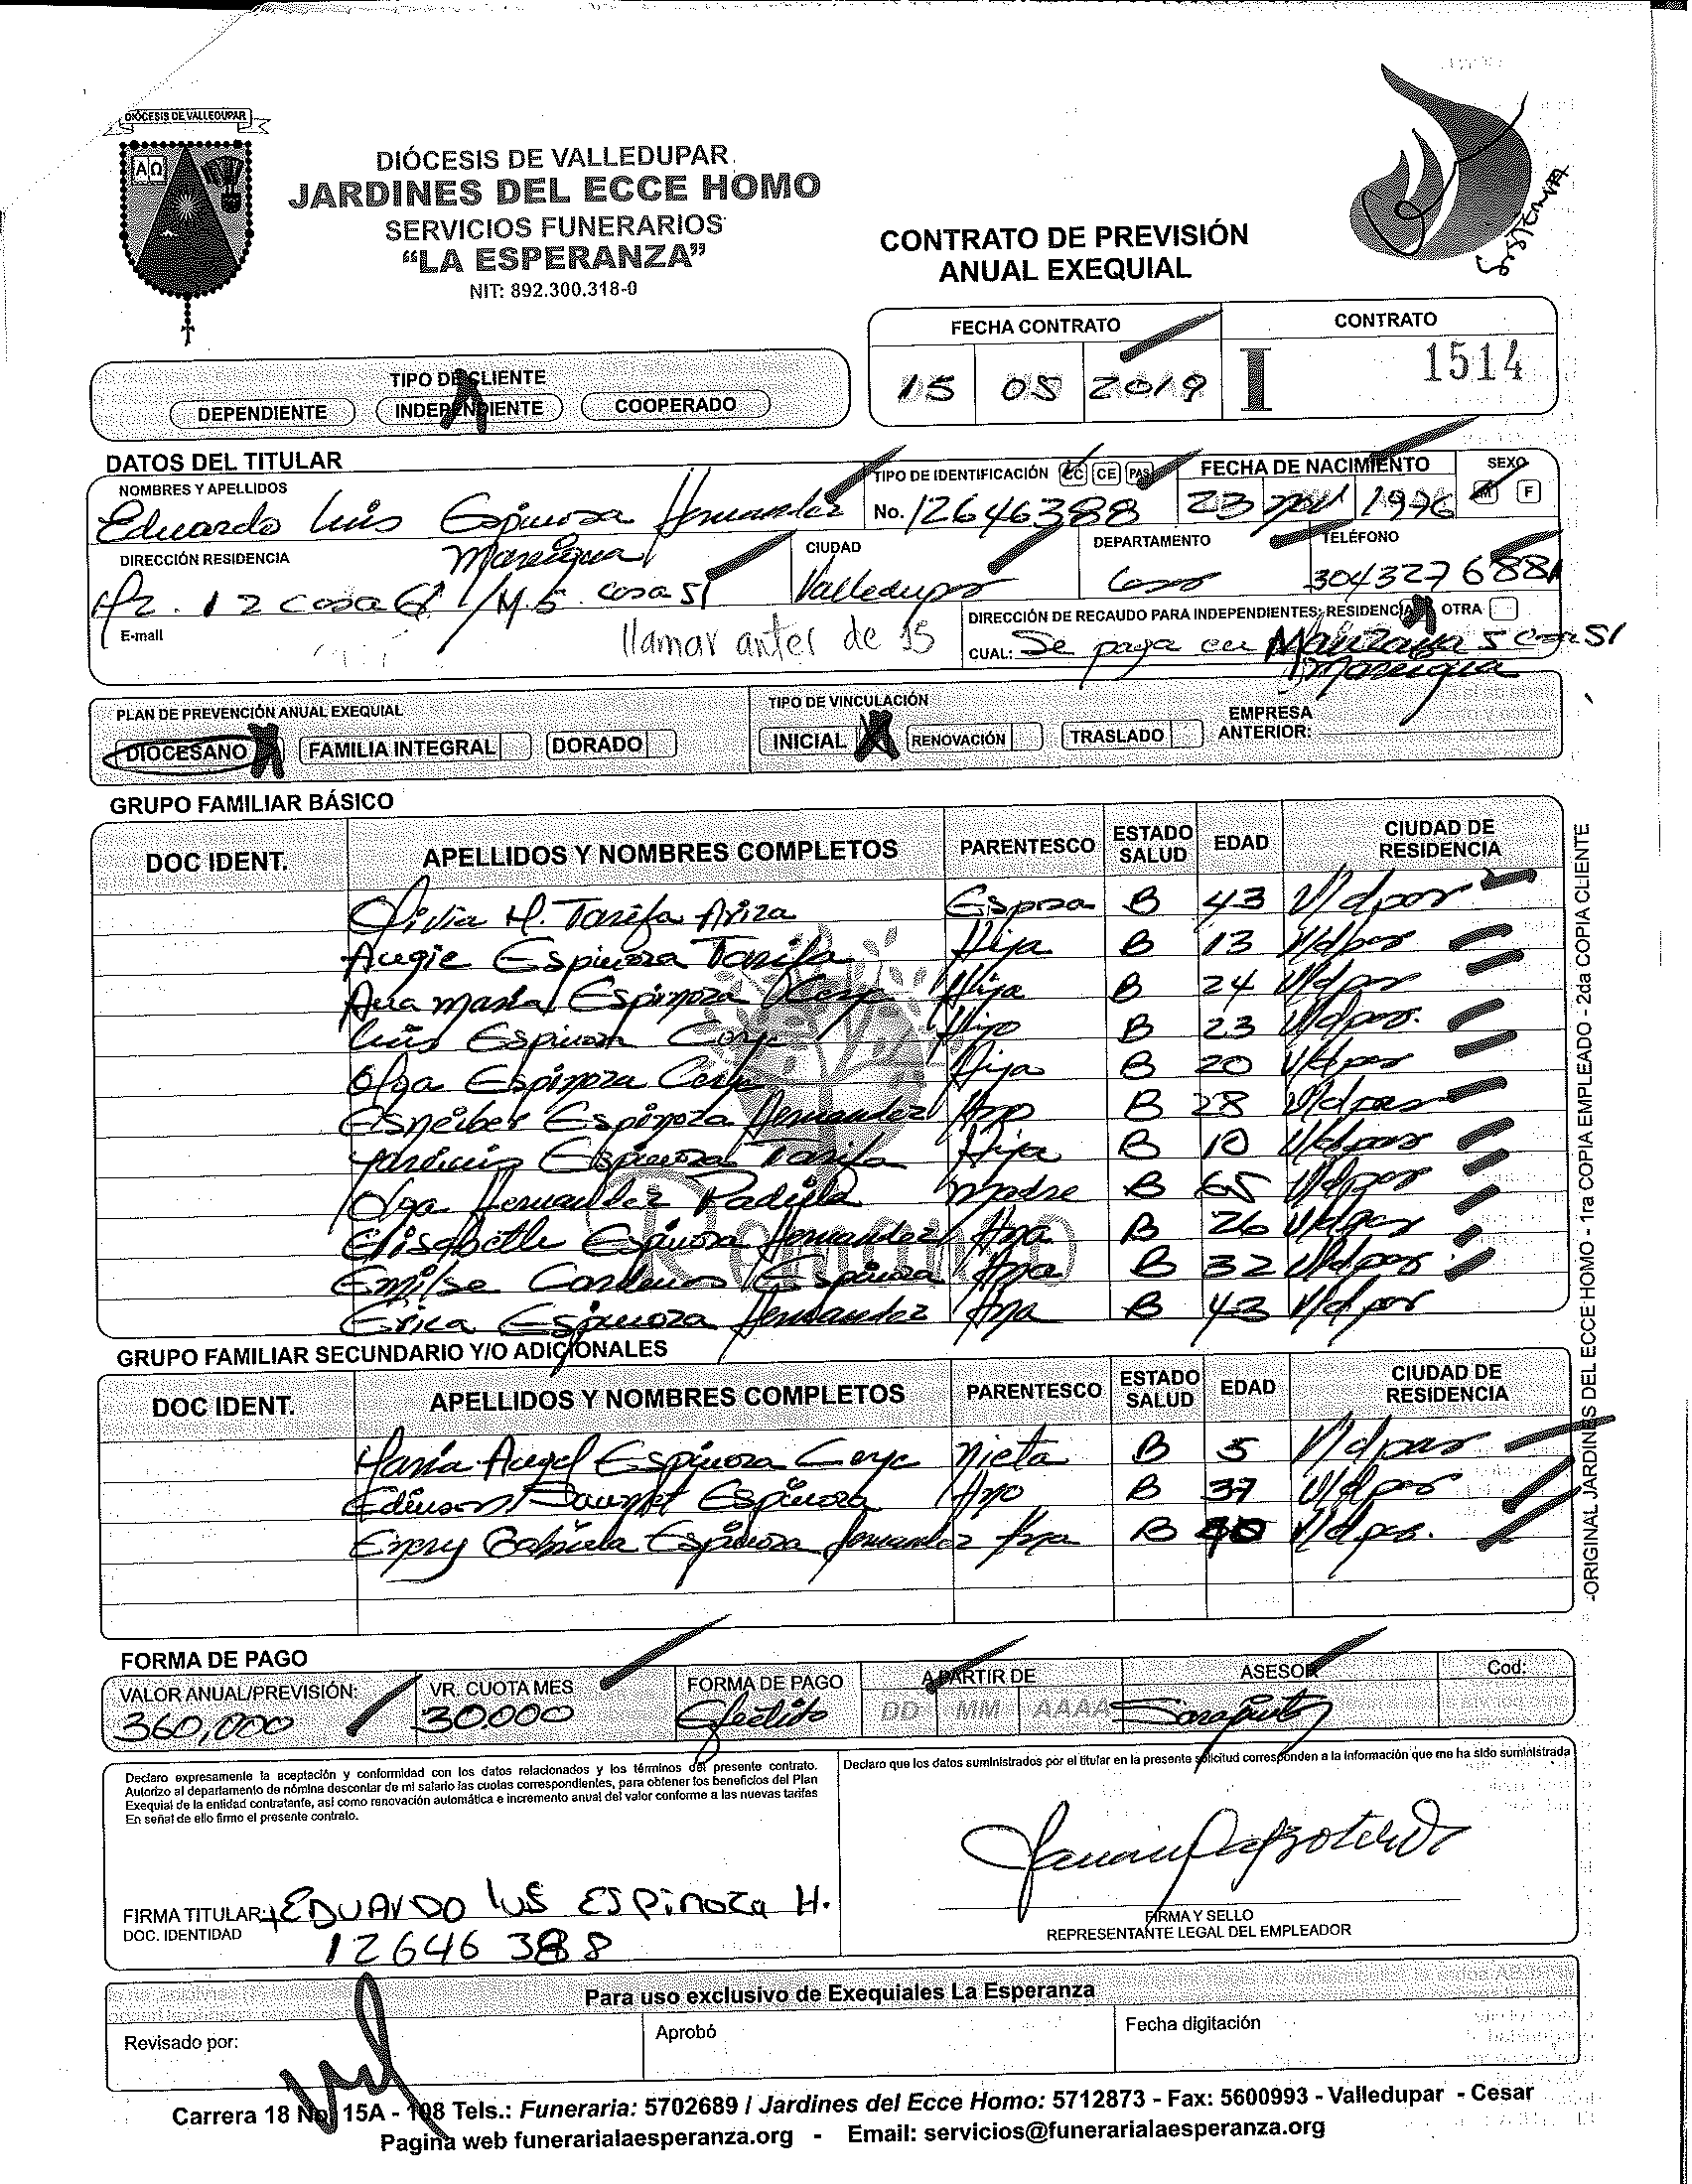 DIÓCESIS DE VALLEDUPAR
DIÓCESIS DE VALLEDUPAR
JARDINES DEL ECCE HOMO
SERVICIOS FUNERARIOS
“LA ESPERANZA”
NIT: 892.300.318-0
CONTRATO DE PREVISIÓN
ANUAL EXEQUIAL
FECHA CONTRATO
CONTRATO
15 05 2019
I 1514
TIPO DE CLIENTE
DEPENDIENTE INDEPENDIENTE COOPERADO
DATOS DEL TITULAR
NOMBRES Y APELLIDOS
TIPO DE IDENTIFICACIÓN CC CE PAS
FECHA DE NACIMIENTO
SEXO
M F
Eduardo Luis Espinosa Hernandez
No. 12646388
23 nov 1976
DIRECCIÓN RESIDENCIA
Mareigua
CIUDAD
DEPARTAMENTO
TELÉFONO
Mz. 12 casa 6 / M.5 casa 51
Valledupar
Cesar
3043276881
E-mail
llamar antes de 15
DIRECCIÓN DE RECAUDO PARA INDEPENDIENTES: RESIDENCIA OTRA
CUAL: Se paga en Manzana 5 casa 51
Mareigua
PLAN DE PREVENCIÓN ANUAL EXEQUIAL
TIPO DE VINCULACIÓN
DIOCESANO X FAMILIA INTEGRAL DORADO
INICIAL X RENOVACIÓN TRASLADO
EMPRESA
ANTERIOR:
GRUPO FAMILIAR BÁSICO
DOC IDENT. APELLIDOS Y NOMBRES COMPLETOS PARENTESCO ESTADO SALUD EDAD CIUDAD DE RESIDENCIA
Olivia M. Tarifa Ariza Esposa B 43 V/dpar
Angie Espinoza Tarifa Hija B 13 V/dpar
Ana Maria Espinoza Hija B 24 V/dpar
Luis Espinoza Hijo B 23 V/dpar.
Olga Espinoza Hija B 20 V/dpar
Esneiber Espinoza Hernandez Hno B 28 V/dpar
Espinoza Tarifa Hija B 10 V/dpar
Olga Hernandez Padilla Madre B 65 V/dpar
Elisabeth Espinoza Hernandez Hna B 26 V/dpar
Emilse Cardenas Espinoza Hna B 32 V/dpar
Erica Espinoza Hernandez Hna B 43 V/dpar
GRUPO FAMILIAR SECUNDARIO Y/O ADICIONALES
DOC IDENT. APELLIDOS Y NOMBRES COMPLETOS PARENTESCO ESTADO SALUD EDAD CIUDAD DE RESIDENCIA
Maria Angel Espinoza Nieta B 5 V/dpar
Edinson Espinoza Hno B 37 V/dpar
Gabriela Espinoza Hernandez Hna B 40 V/dpar.
-ORIGINAL JARDINES DEL ECCE HOMO - 1ra COPIA EMPLEADO - 2da COPIA CLIENTE
FORMA DE PAGO
VALOR ANUAL/PREVISIÓN: VR. CUOTA MES FORMA DE PAGO A PARTIR DE ASESOR Cod:
360,000 30.000 Efectivo DD MM AAAA
Declaro expresamente la aceptación y conformidad con los datos relacionados y los términos del presente contrato.
Autorizo al departamento de nómina descontar de mi salario las cuotas correspondientes, para obtener los beneficios del Plan
Exequial de la entidad contratante, así como renovación automática e incremento anual del valor conforme a las nuevas tarifas
En señal de ello firmo el presente contrato.
Declaro que los datos suministrados por el titular en la presente solicitud corresponden a la información que me ha sido suministrada
FIRMA TITULAR: EDUARDO LUIS ESPINOZA H.
DOC. IDENTIDAD
12646388
FIRMA Y SELLO
REPRESENTANTE LEGAL DEL EMPLEADOR
Para uso exclusivo de Exequiales La Esperanza
Revisado por:
Aprobó
Fecha digitación
Carrera 18 No. 15A - 108 Tels.: Funeraria: 5702689 / Jardines del Ecce Homo: 5712873 - Fax: 5600993 - Valledupar - Cesar
Pagina web funerarialaesperanza.org - Email: servicios@funerarialaesperanza.org